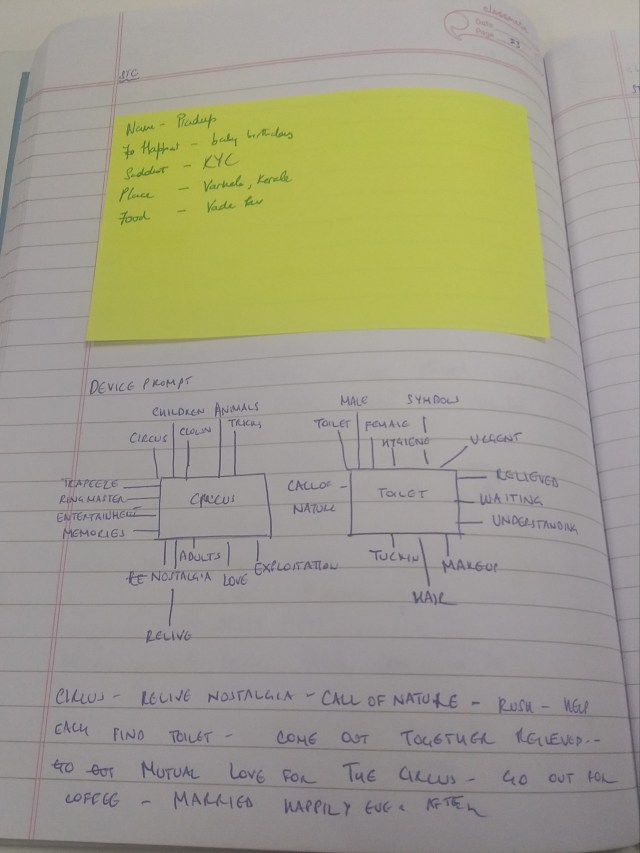 classmate
Date
Page 25
STC
Name - Pradeep
Happiest - baby birthday
Saddest - KYC
Place - Varkala, Kerala
Food - Vada Pav
DEVICE PROMPT
CHILDREN ANIMALS
CIRCUS CLOWN TRICKS
TRAPEZE
RING MASTER
ENTERTAINMENT
MEMORIES
CIRCUS
ADULTS
RE NOSTALGIA LOVE EXPLOITATION
RELIVE
MALE SYMBOLS
TOILET FEMALE
HYGIENE URGENT
CALL OF
NATURE
TOILET
RELIEVED
WAITING
UNDERSTANDING
TUCKIN MAKEUP
HAIR
CIRCUS - RELIVE NOSTALGIA - CALL OF NATURE - RUSH - HELP
EACH FIND TOILET - COME OUT TOGETHER RELIEVED --
GO OUT MUTUAL LOVE FOR THE CIRCUS - GO OUT FOR
COFFEE - MARRIED HAPPILY EVER AFTER